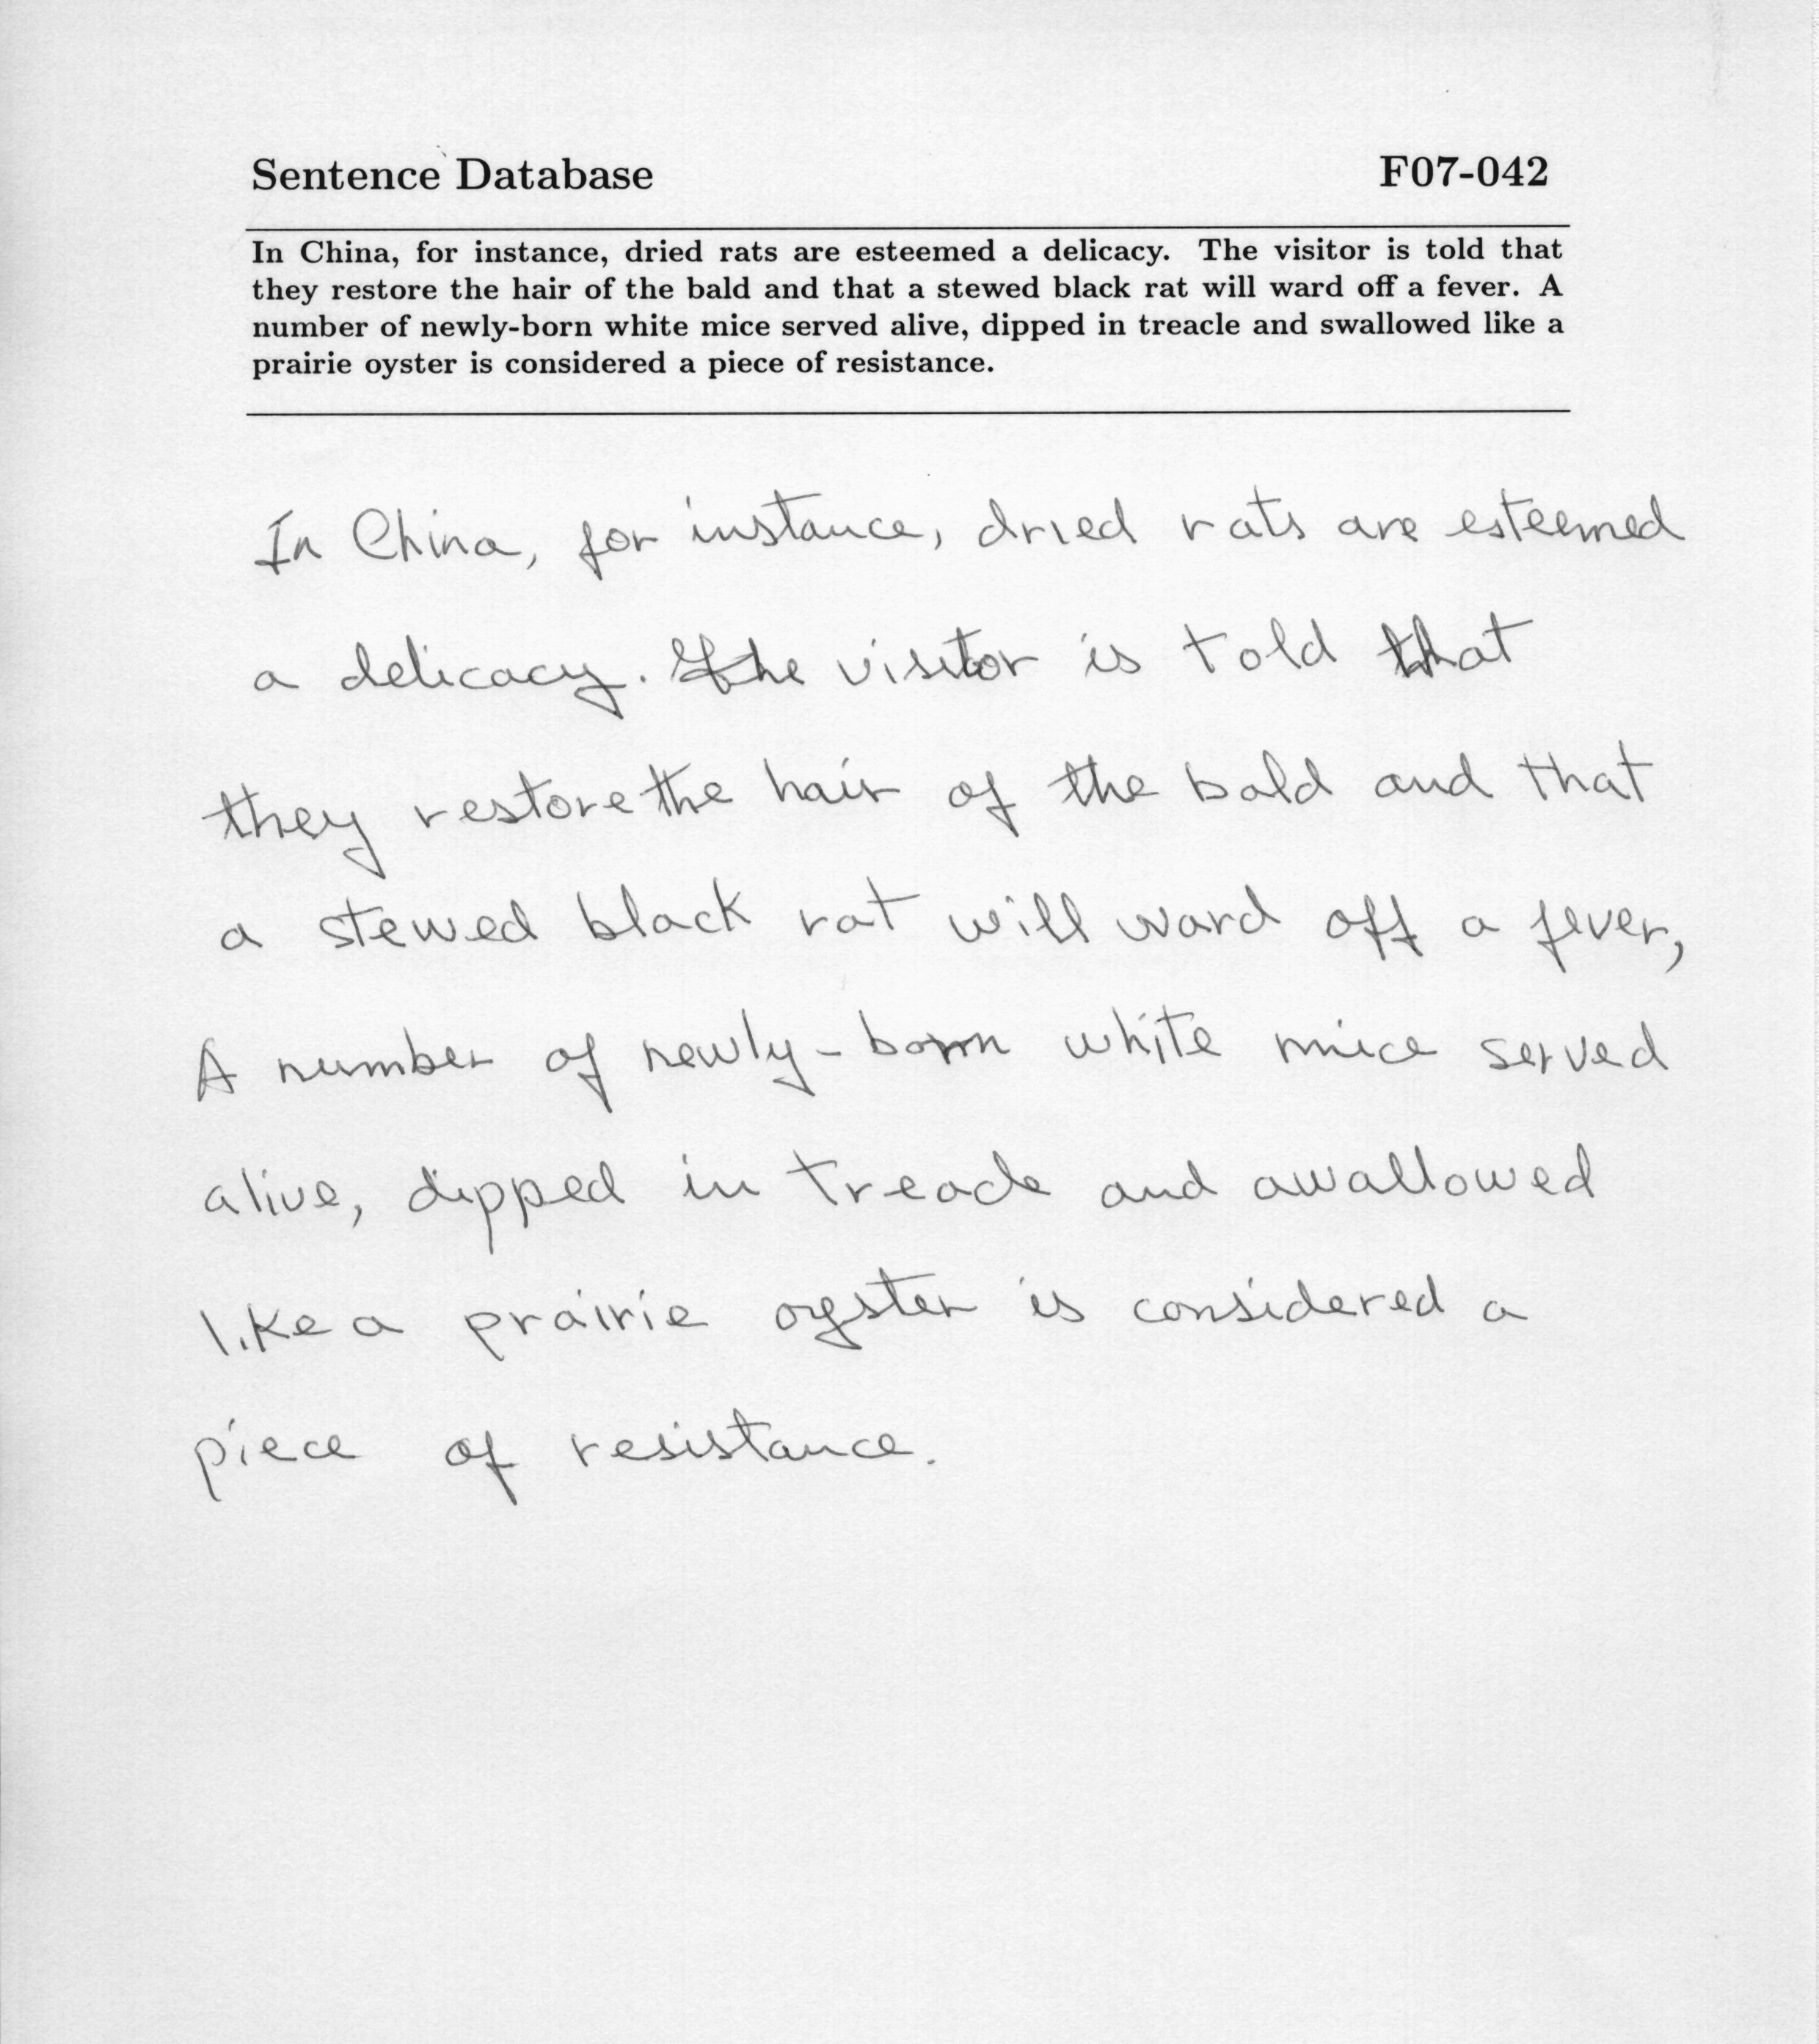 Sentence Database F07-042
In China, for instance, dried rats are esteemed a delicacy. The visitor is told that
they restore the hair of the bald and that a stewed black rat will ward off a fever. A
number of newly-born white mice served alive, dipped in treacle and swallowed like a
prairie oyster is considered a piece of resistance.
In China, for instance, dried rats are esteemed
a delicacy. The visitor is told that
they restore the hair of the bald and that
a stewed black rat will ward off a fever,
A number of newly-born white mice served
alive, dipped in treacle and awallowed
like a prairie oyster is considered a
piece of resistance.